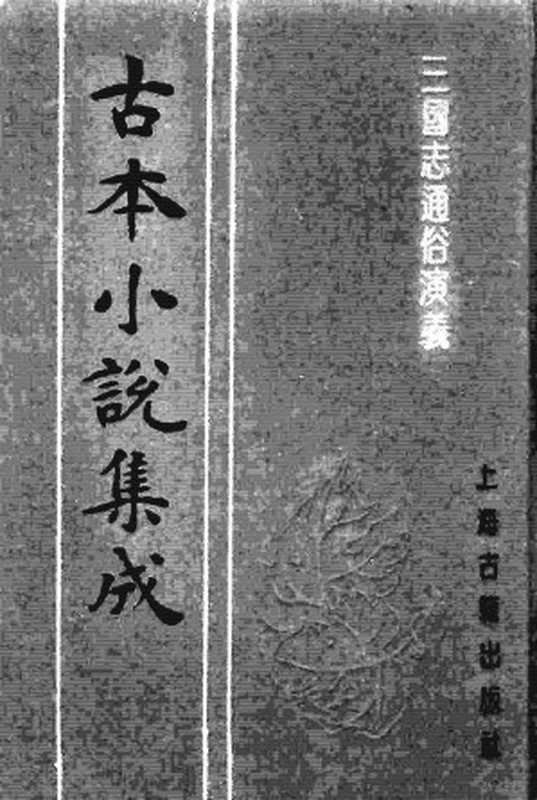 三國志通俗演義
上海古籍出版社
古本小說集成